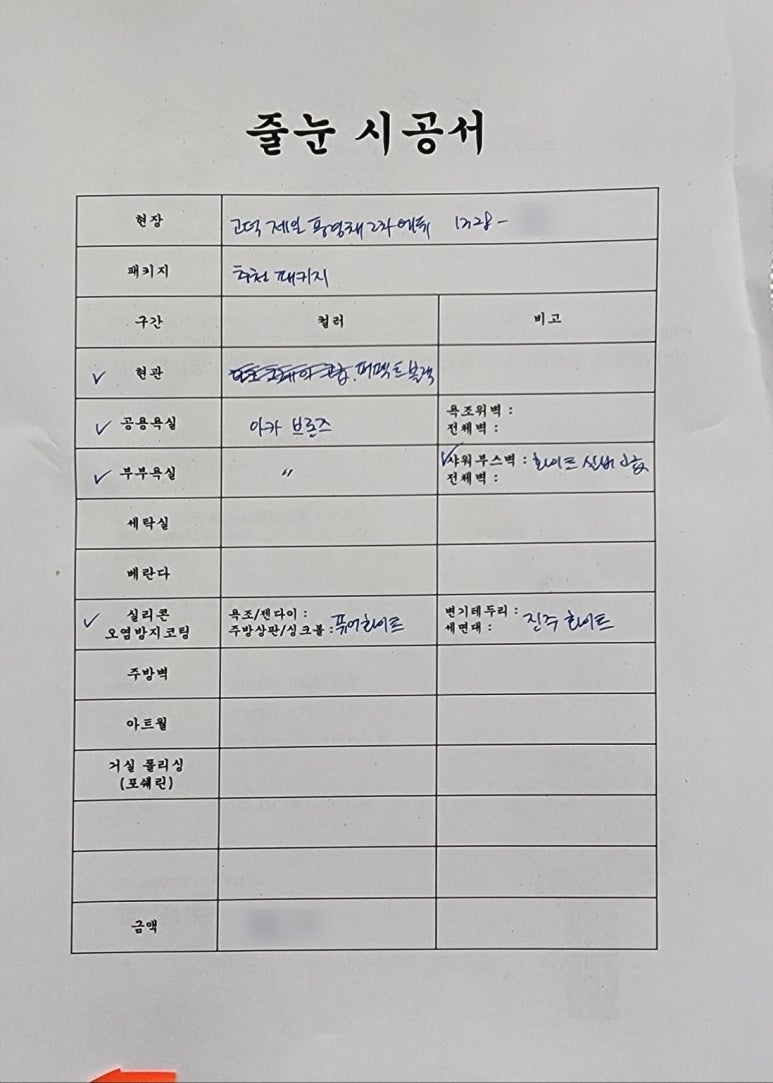 줄눈 시공서
현장 고덕 제일 풍경채 2차 에듀 1728 -
패키지 추천 패키지
구간 컬러 비고
현관 퍼펙트블랙
공용욕실 아카 브론즈 욕조위벽 :
전체벽 :
부부욕실 〃 샤워부스벽 : 화이트 실버
전체벽 :
세탁실
베란다
실리콘 욕조/젠다이 : 변기테두리 :
오염방지코팅 주방상판/싱크볼 : 퓨어화이트 세면대 : 진주 화이트
주방벽
아트월
거실 폴리싱
(포쉐린)
금액